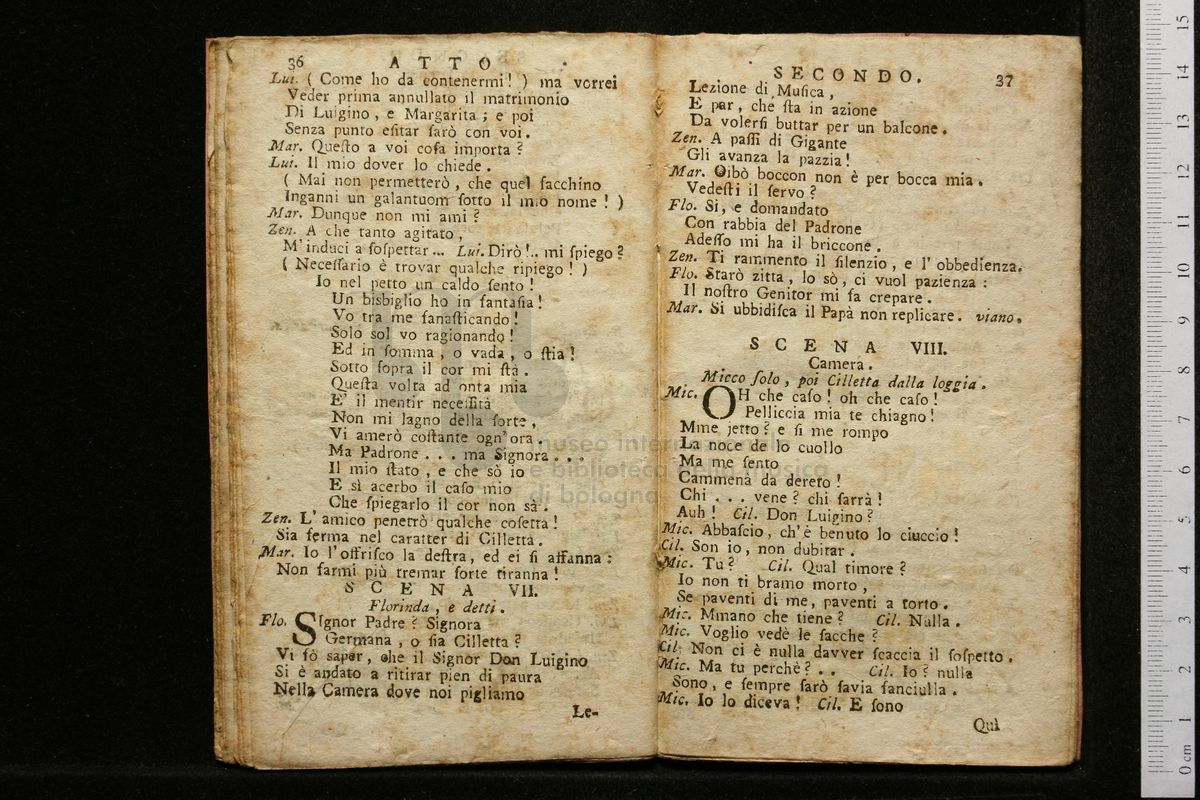 36 ATTO
Lui. ( Come ho da contenermi! ) ma vorrei
Veder prima annullato il matrimonio
Di Luigino, e Margarita; e poi
Senza punto eſitar farò con voi.
Mar. Queſto a voi coſa importa?
Lui. Il mio dover lo chiede.
( Mai non permetterò, che quel facchino
Inganni un galantuom ſotto il mio nome! )
Mar. Dunque non mi ami?
Zen. A che tanto agitato,
M'induci a ſoſpettar... Lui. Dirò!.. mi ſpiego?
( Neceſſario è trovar qualche ripiego! )
Io nel petto un caldo ſento!
Un bisbiglio ho in fantaſia!
Vo tra me fanaſticando!
Solo ſol vo ragionando!
Ed in ſomma, o vada, o ſtia!
Sotto ſopra il cor mi ſta.
Queſta volta ad onta mia
E' il mentir neceſſità
Non mi lagno della ſorte,
Vi amerò coſtante ogn'ora.
Ma Padrone... ma Signora...
Il mio ſtato, e che sò io
E sì acerbo il caſo mio
Che ſpiegarlo il cor non sà.
Zen. L'amico penetrò qualche coſetta!
Sia ferma nel caratter di Cilletta.
Mar. Io l'offriſco la deſtra, ed ei ſi affanna:
Non farmi più tremar ſorte tiranna!
SCENA VII.
Florinda, e detti.
Flo. SIgnor Padre? Signora
Germana, o ſia Cilletta?
Vi fò saper, che il Signor Don Luigino
Si è andato a ritirar pien di paura
Nella Camera dove noi pigliamo
Le-
SECONDO. 37
Lezione di Muſica,
E par, che ſta in azione
Da volerſi buttar per un balcone.
Zen. A paſſi di Gigante
Gli avanza la pazzia!
Mar. Oibò boccon non è per bocca mia.
Vedeſti il ſervo?
Flo. Si, e domandato
Con rabbia del Padrone
Adeſſo mi ha il briccone.
Zen. Ti rammento il ſilenzio, e l'obbedienza.
Flo. Starò zitta, lo sò, ci vuol pazienza:
Il noſtro Genitor mi fa crepare.
Mar. Si ubbidiſca il Papà non replicare. viano.
SCENA VIII.
Camera.
Micco ſolo, poi Cilletta dalla loggia.
Mic. OH che caſo! oh che caſo!
Pelliccia mia te chiagno!
Mme jetto? e ſi me rompo
La noce de lo cuollo
Ma me ſento
Cammenà da dereto!
Chi... vene? chi ſarrà!
Auh! Cil. Don Luigino?
Mic. Abbaſcio, ch'è benuto lo ciuccio!
Cil. Son io, non dubirar.
Mic. Tu? Cil. Qual timore?
Io non ti bramo morto,
Se paventi di me, paventi a torto.
Mic. Mmano che tiene? Cil. Nulla.
Mic. Voglio vedè le ſacche?
Cil. Non ci è nulla davver ſcaccia il ſoſpetto.
Mic. Ma tu perchè?.. Cil. Io? nulla
Sono, e ſempre ſarò ſavia fanciulla.
Mic. Io lo diceva! Cil. E ſono
Quì
museo internazionale
e biblioteca della musica
di bologna
0 cm 1 2 3 4 5 6 7 8 9 10 11 12 13 14 15